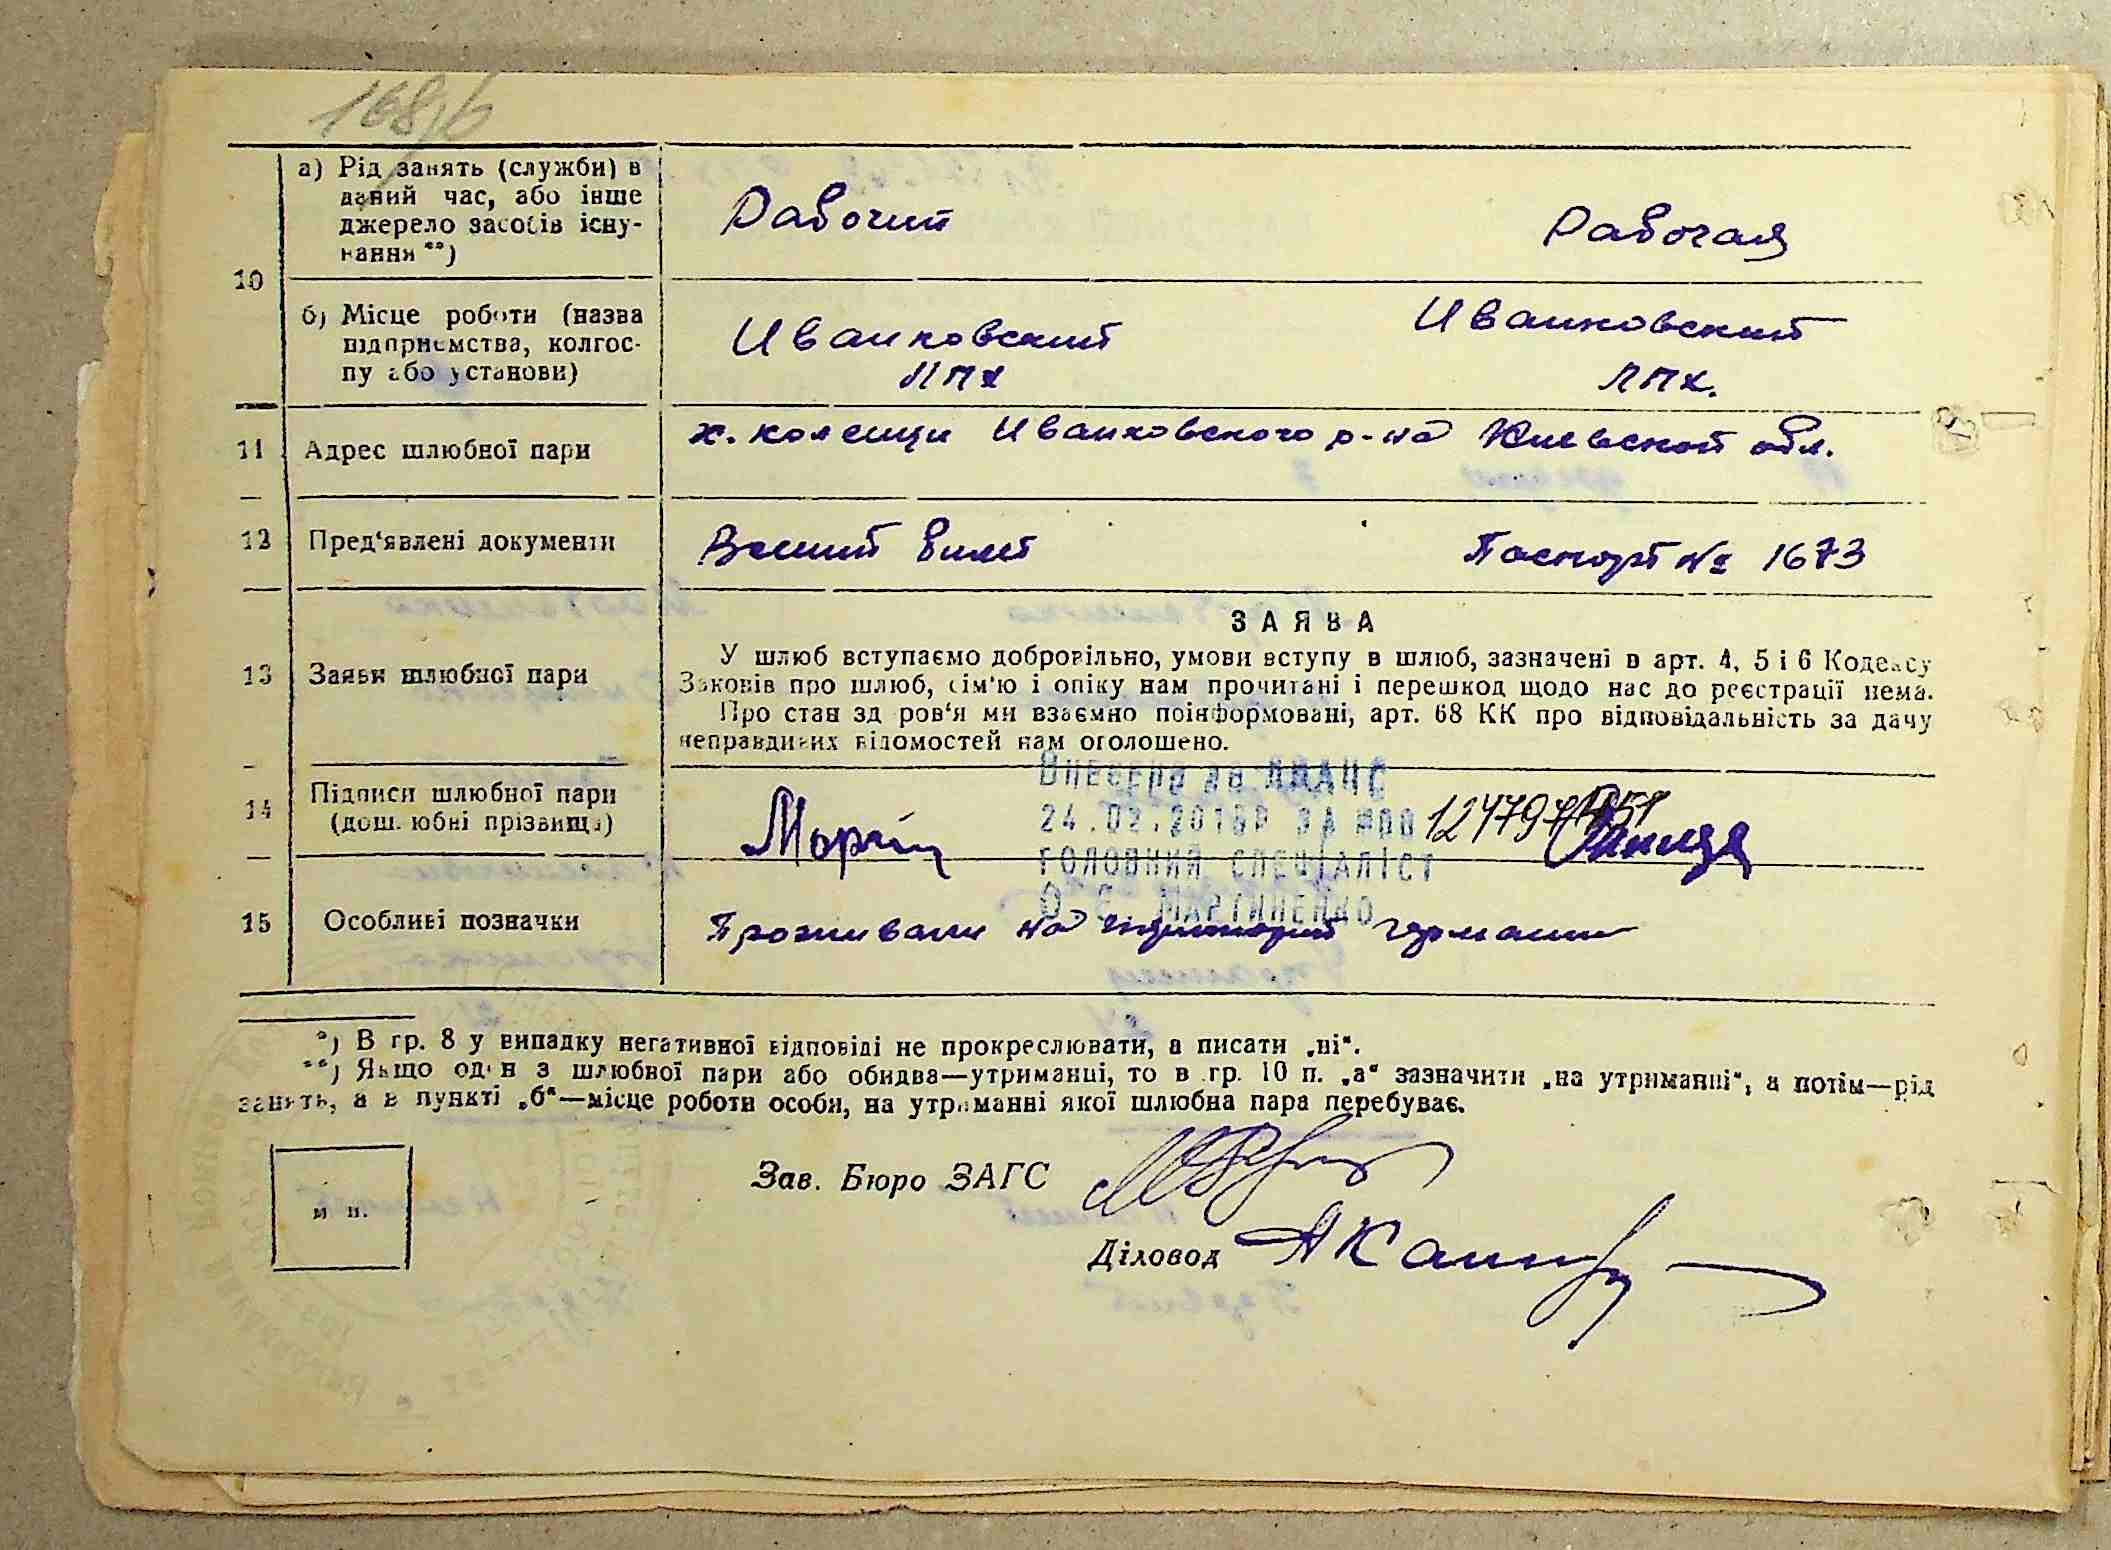 а) Рід занять (служби) в
даний час, або інше
джерело засобів існу-
вання **)
Рабочий
Рабочая
10
б) Місце роботи (назва
підприємства, колгос-
пу або установи)
Иванковский
ЛПХ
Иванковский
ЛПХ.
11 Адрес шлюбної пари
х. коленци Иванковского р-на Киевской обл.
12 Пред'явлені документи
Военний билет
Паспорт № 1673
13 Заяви шлюбної пари
ЗАЯВА
У шлюб вступаємо добровільно, умови вступу в шлюб, зазначені в арт. 4, 5 і 6 Кодексу
Законів про шлюб, сім'ю і опіку нам прочитані і перешкод щодо нас до реєстрації нема.
Про стан здоров'я ми взаємно поінформовані, арт. 68 КК про відповідальність за дачу
неправдивих відомостей нам оголошено.
14 Підписи шлюбної пари
(дошлюбні прізвища)
Внесено до ДРАЦС
за №00
головний спеціаліст
О С Мартиненко
15 Особливі позначки
Проживали на германии
*) В гр. 8 у випадку негативної відповіді не прокреслювати, а писати „ні“.
**) Якщо один з шлюбної пари або обидва—утриманці, то в гр. 10 п. „а“ зазначити „на утриманні“, а потім—рід
занять, а в пункті „б“—місце роботи особи, на утриманні якої шлюбна пара перебуває.
м п.
Зав. Бюро ЗАГС
Діловод